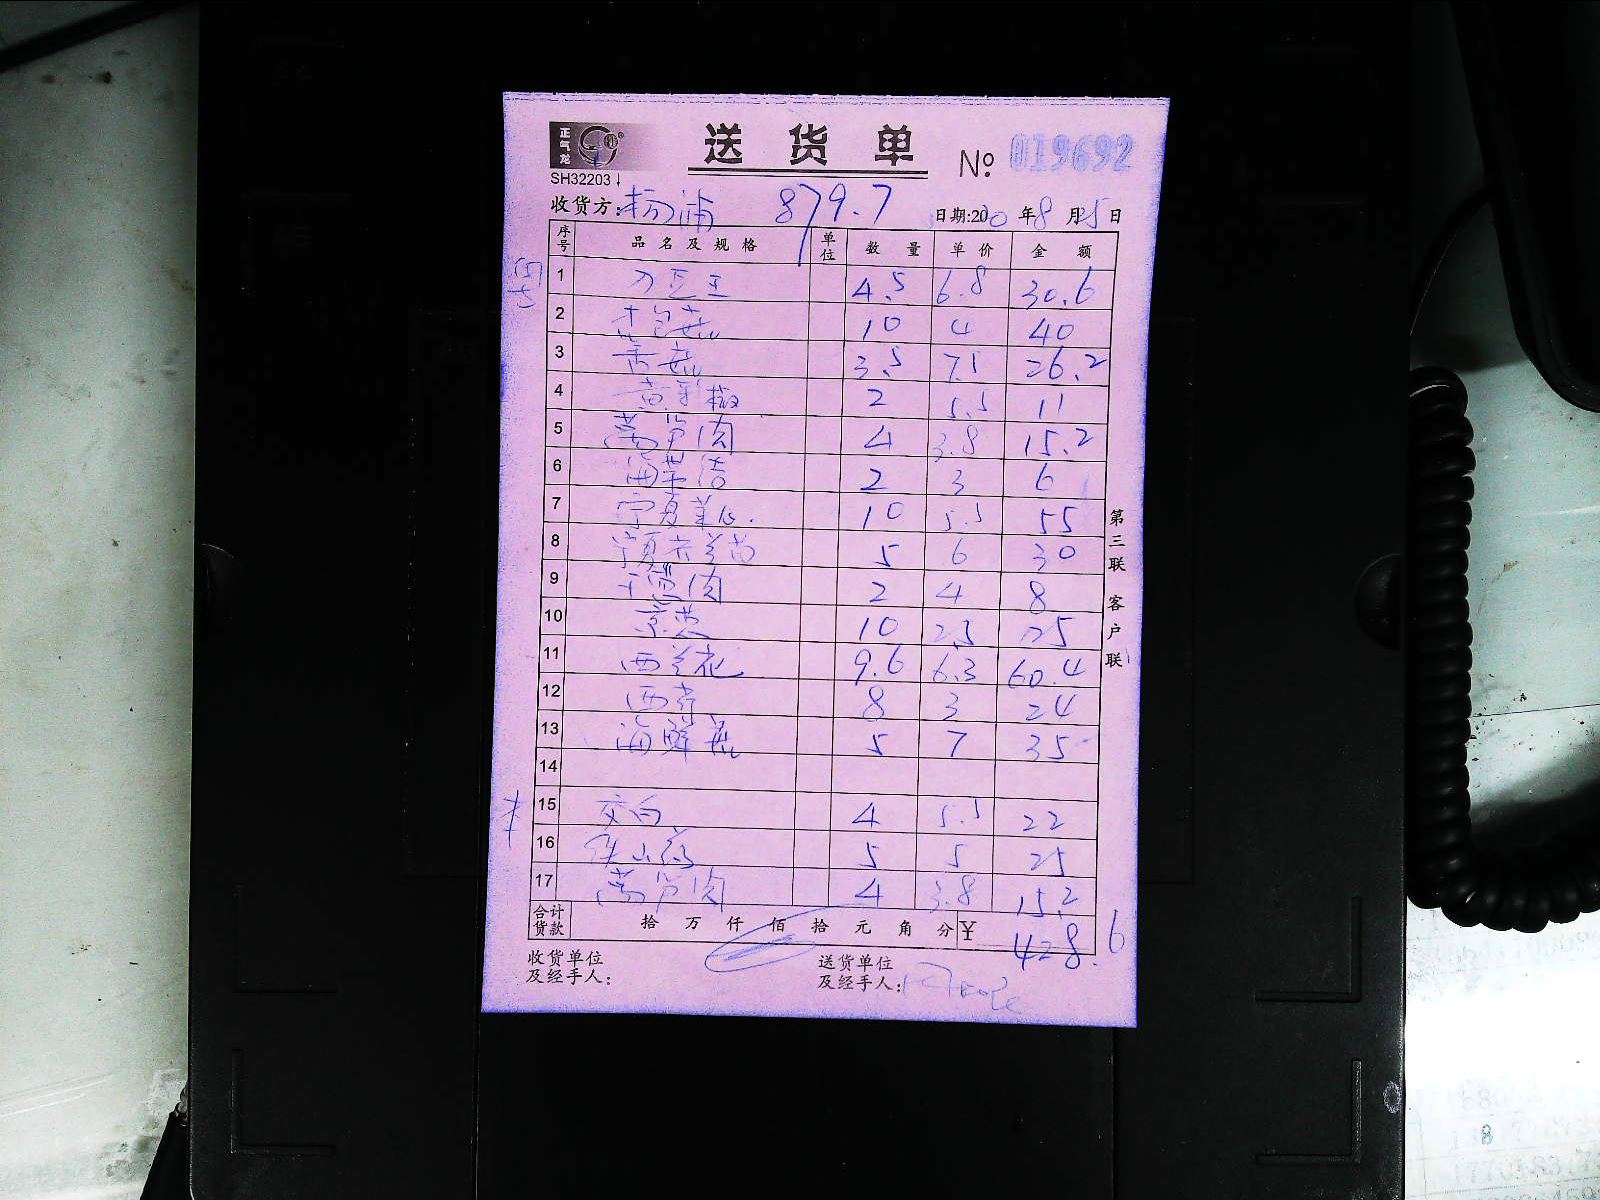 正气龙
送货单
SH32203
№ 019692
收货方:杨浦 879.7 日期:2020年8月25日
序号 品名及规格 单位 数量 单价 金额
1 刀豆王 4.5 6.8 30.6
2 杏包菇 10 4 40
3 香菇 3.5 7.5 26.2
4 黄彩椒 2 5.5 11
5 莴笋肉 4 3.8 15.2
6 2 3 6
7 宁夏菜心 10 5.5 55
8 宁夏 苗 5 6 30
9 肉 2 4 8
10 京葱 10 2.5 25
11 西兰花 9.6 6.3 60.4
12 西芹 8 3 24
13 海鲜菇 5 7 35
14
15 交白 4 5.5 22
16 铁山药 5 5 25
17 莴笋肉 4 3.8 15.2
合计货款 拾 万 仟 佰 拾 元 角 分 ¥ 428.6
收货单位及经手人:
送货单位及经手人:
第三联 客户联